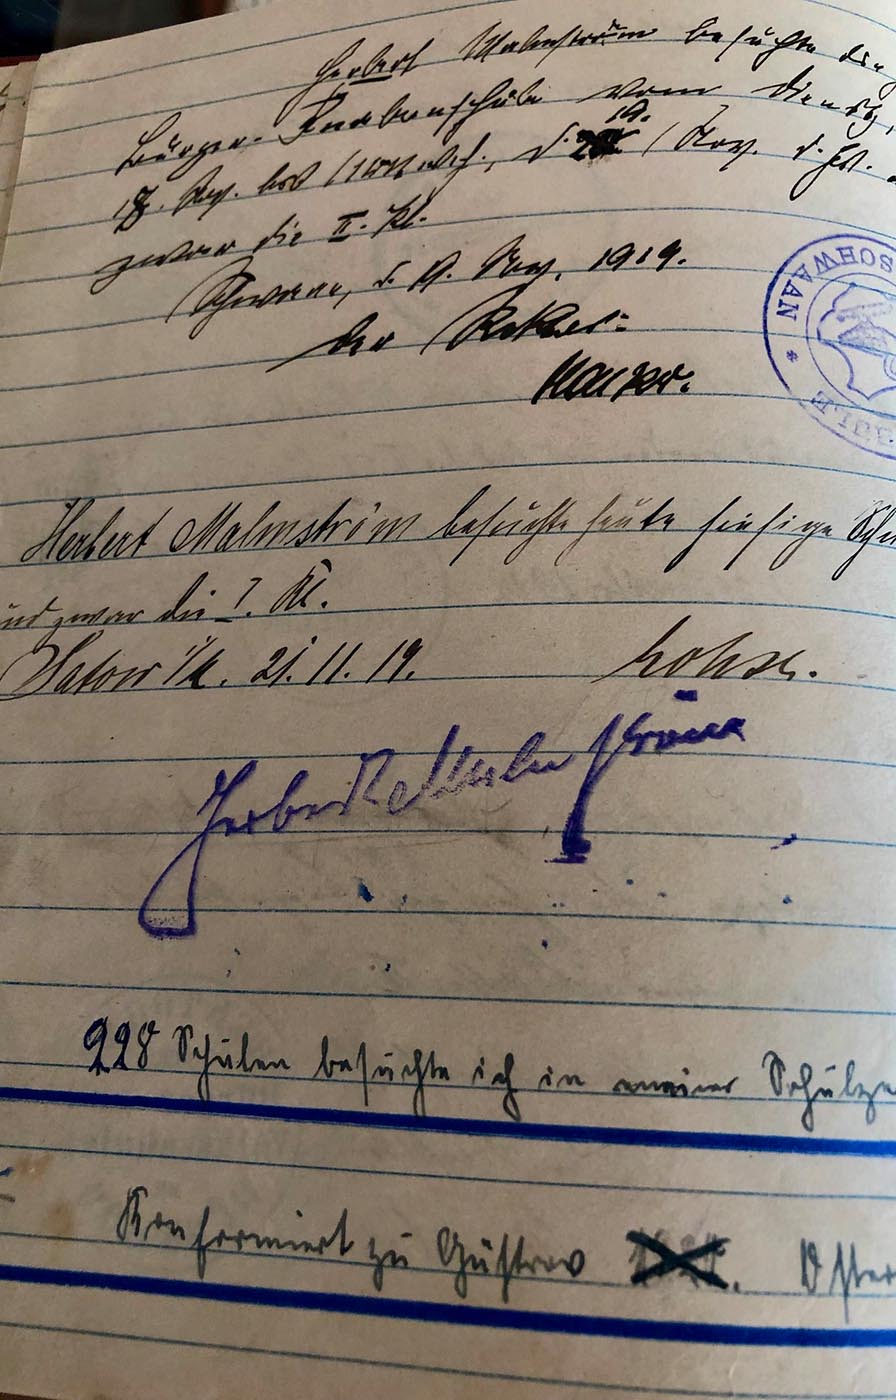 Herbert Malmström besuchte die
Bürger-Knabenschule vom Dienstg.
18. Nov. bis Mittwch., d. 19. Nov. d. Js.
zwar die II. Kl.
Schwaan, d. 19. Nov. 1919.
Der Rektor:
SCHWAAN *
Herbert Malmström besuchte heute hiesige Schu
und zwar die I. Kl.
Satow i/M. 21. 11. 19.
Lohse.
Herbert Malmström
228 Schulen besuchte ich in meiner Schulze
Konfirmiert zu Güstrow Oster